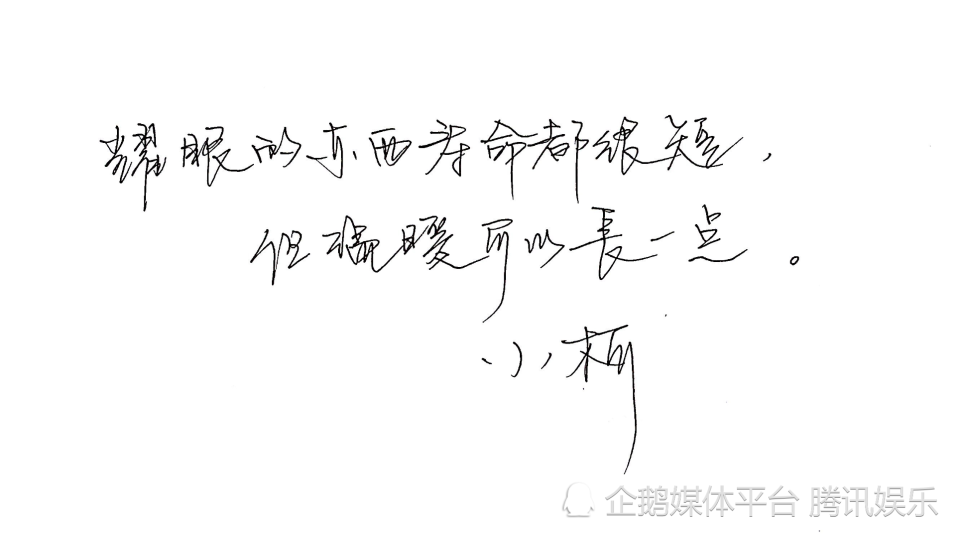 耀眼的东西寿命都很短，
但温暖可以長一点。
小柯
企鹅媒体平台 腾讯娱乐